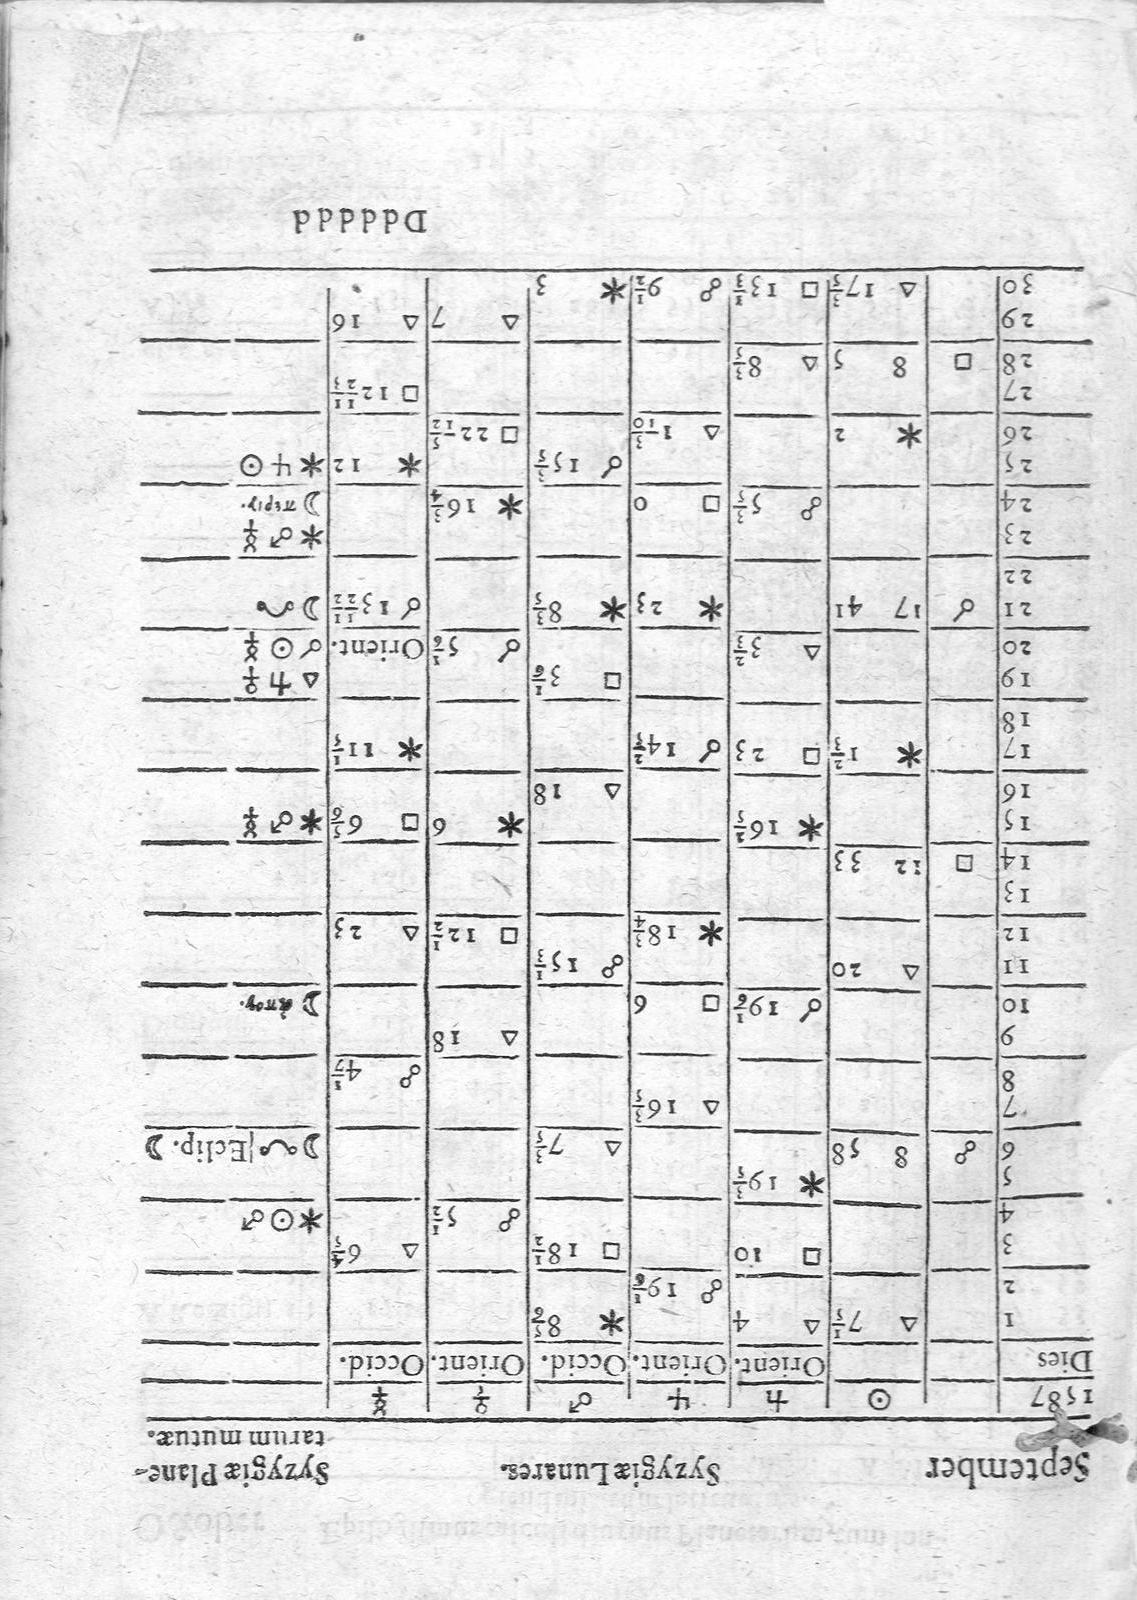 September Syzygiæ Lunares. Syzygiæ Plane-
tarum mutuæ.
1587 ☉ ♄ ♃ ♂ ♀ ☿
Dies Orient. Orient. Occid. Orient. Occid.
1 △ 7 1/5 △ 4 ✱ 8 5/6
2 ☍ 19 1/6
3 □ 10 □ 18 1/2 △ 6 4/5
4 ☍ 5 1/2 ✱ ☉ ♂
5 ✱ 19 3/5
6 ☍ 8 58 △ 7 3/5 ☽ ☊ Eclip. ☽
7 △ 16 3/5
8 ☍ 4 1/7
9 △ 18
10 ☌ 19 1/6 □ 6 ☽ ἀπογ.
11 △ 20 ☍ 15 1/3
12 ✱ 18 3/4 □ 12 1/2 △ 23
13
14 □ 12 33
15 ✱ 16 2/5 ✱ 6 □ 6 5/6 ✱ ♂ ☿
16 △ 18
17 ✱ 1 2/3 □ 23 ☌ 14 2/5 ✱ 11 1/5
18
19 □ 3 1/6 △ ♃ ♀
20 △ 3 2/3 ☌ 5 1/6 Orient. ☌ ☉ ☿
21 ☌ 17 41 ✱ 23 ✱ 8 3/5 ☌ 13 11/22 ☽ ☋
22
23 ✱ ♂ ☿
24 ☍ 5 3/5 □ 0 ✱ 16 3/4 ☽ περιγ.
25 ☌ 15 3/5 ✱ 12 ✱ ♃ ☉
26 ✱ 2 △ 1 3/10 □ 22 5/12
27 □ 12 11/23
28 □ 8 5 △ 8 3/5
29 △ 7 △ 16
30 △ 17 3/5 □ 13 1/3 ☍ 9 1/2 ✱ 3
Dddddd